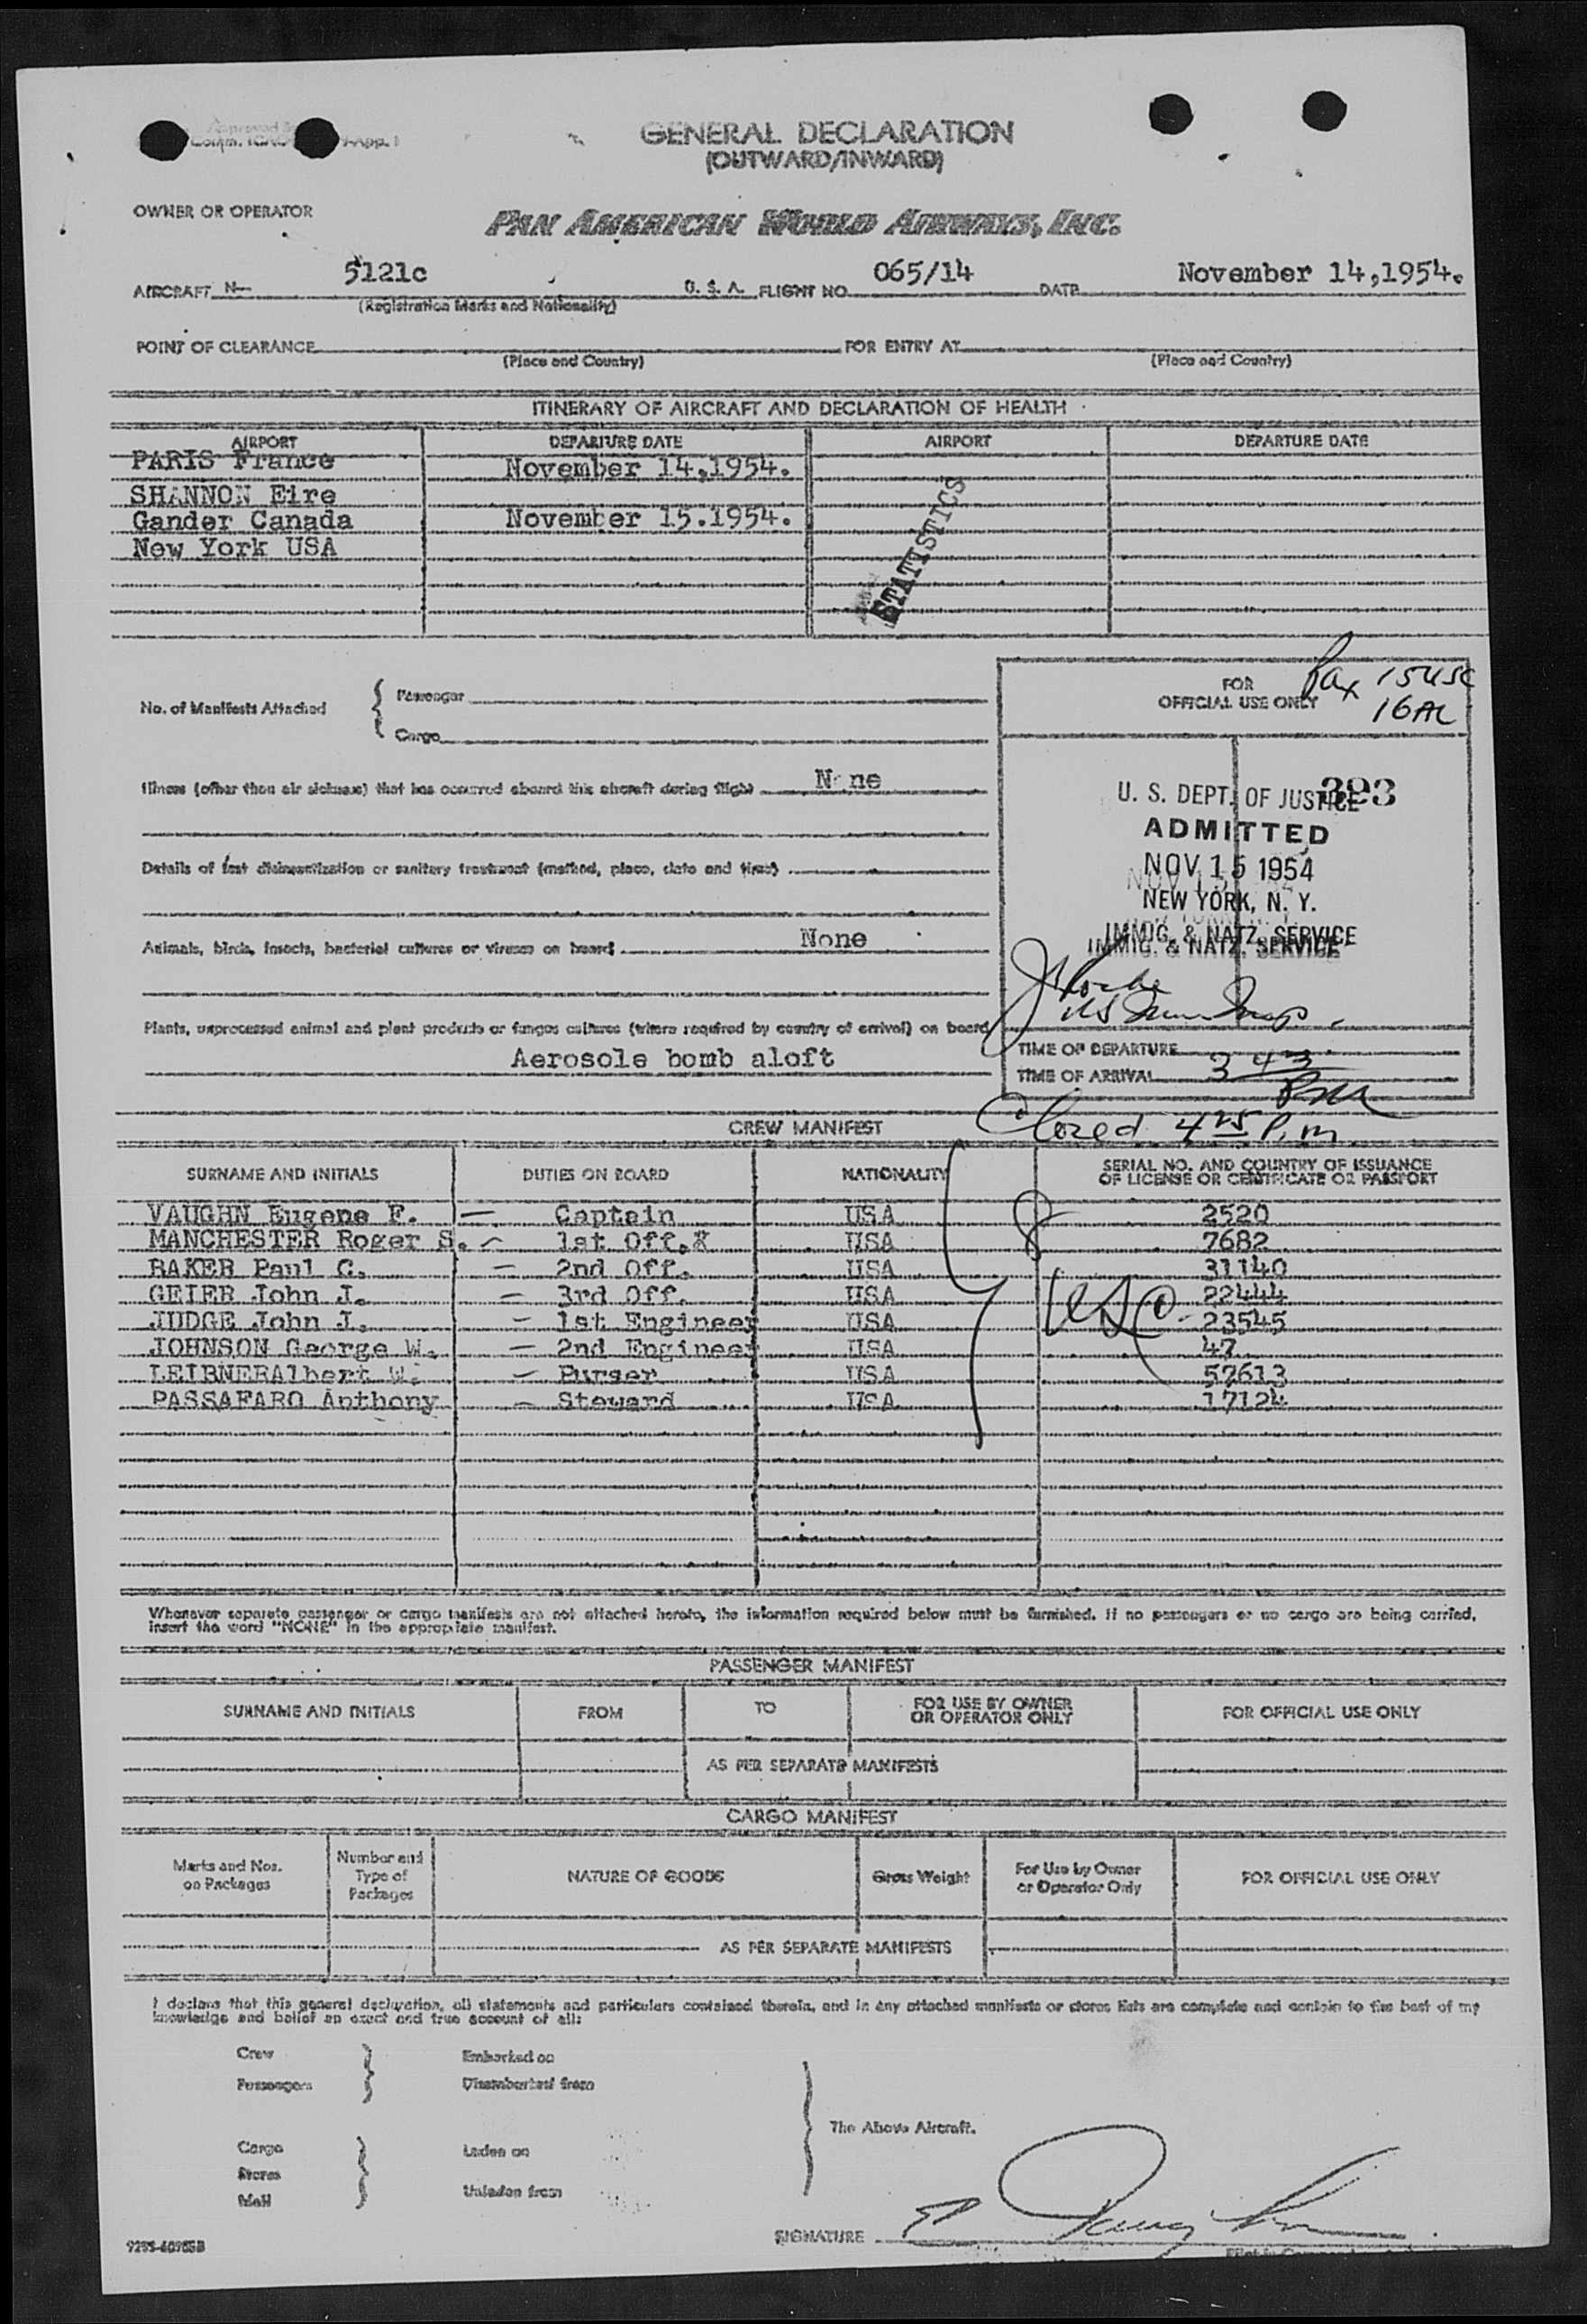 GENERAL DECLARATION
(OUTWARD/INWARD)
OWNER OR OPERATOR PAN AMERICAN WORLD AIRWAYS, INC.
AIRCRAFT N— 5121c U. S. A. FLIGHT NO. 065/14 DATE November 14,1954.
(Registration Marks and Nationality)
POINT OF CLEARANCE FOR ENTRY AT
(Place and Country) (Place and Country)
ITINERARY OF AIRCRAFT AND DECLARATION OF HEALTH
AIRPORT DEPARTURE DATE AIRPORT DEPARTURE DATE
PARIS France November 14,1954.
SHANNON Eire
Gander Canada November 15.1954.
New York USA
STATISTICS
FOR
OFFICIAL USE ONLY
Pax
No. of Manifests Attached
Passenger
Cargo
Illness (other than air sickness) that has occurred aboard this aircraft during flight None
Details of last disinsectization or sanitary treatment (method, place, date and time)
Animals, birds, insects, bacterial cultures or viruses on board None
Plants, unprocessed animal and plant products or fungus cultures (where required by country of arrival) on board
Aerosole bomb aloft
393
U. S. DEPT. OF JUSTICE
ADMITTED
NOV 15 1954
NEW YORK, N. Y.
IMMIG. & NATZ. SERVICE
IMMIG. & NATZ. SERVICE
TIME OF DEPARTURE
TIME OF ARRIVAL 3 43 PM
Closed 4 25 P.m
CREW MANIFEST
SURNAME AND INITIALS DUTIES ON BOARD NATIONALITY SERIAL NO. AND COUNTRY OF ISSUANCE
OF LICENSE OR CERTIFICATE OR PASSPORT
VAUGHN Eugene F. — Captain USA 2520
MANCHESTER Roger S. — 1st Off. USA 7682
BAKER Paul C. — 2nd Off. USA 31140
GEIER John J. — 3rd Off. USA 22444
JUDGE John J. — 1st Engineer USA 23545
JOHNSON George W. — 2nd Engineer USA 47
LEIBNERAlbert W. — Purser USA 57613
PASSAFARO Anthony — Steward USA 17124
8
Whenever separate passenger or cargo manifests are not attached hereto, the information required below must be furnished. If no passengers or no cargo are being carried,
insert the word "NONE" in the appropriate manifest.
PASSENGER MANIFEST
SURNAME AND INITIALS FROM TO FOR USE BY OWNER
OR OPERATOR ONLY FOR OFFICIAL USE ONLY
AS PER SEPARATE MANIFESTS
CARGO MANIFEST
Marks and Nos.
on Packages
Number and
Type of
Packages
NATURE OF GOODS
Gross Weight
For Use by Owner
or Operator Only
FOR OFFICIAL USE ONLY
AS PER SEPARATE MANIFESTS
I declare that this general declaration, all statements and particulars contained therein, and in any attached manifests or stores lists are complete and contain to the best of my
knowledge and belief an exact and true account of all:
Crew Embarked on
Passengers Disembarked from
The Above Aircraft.
Cargo Laden on
Stores
Mail Unladen from
SIGNATURE